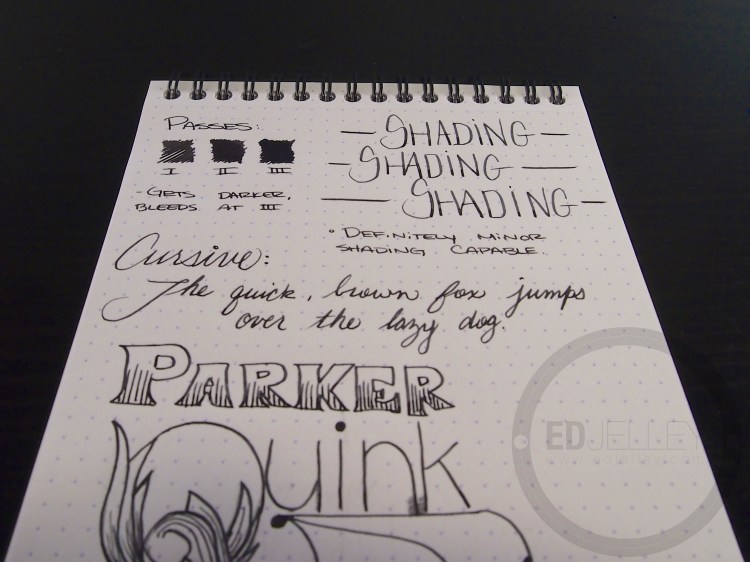 Passes:
I II III
- Gets darker,
bleeds at III
— Shading —
— Shading —
— Shading —
• Definitely minor
shading capable.
Cursive:
The quick, brown fox jumps
over the lazy dog.
PARKER
Quink
EDJELLEY